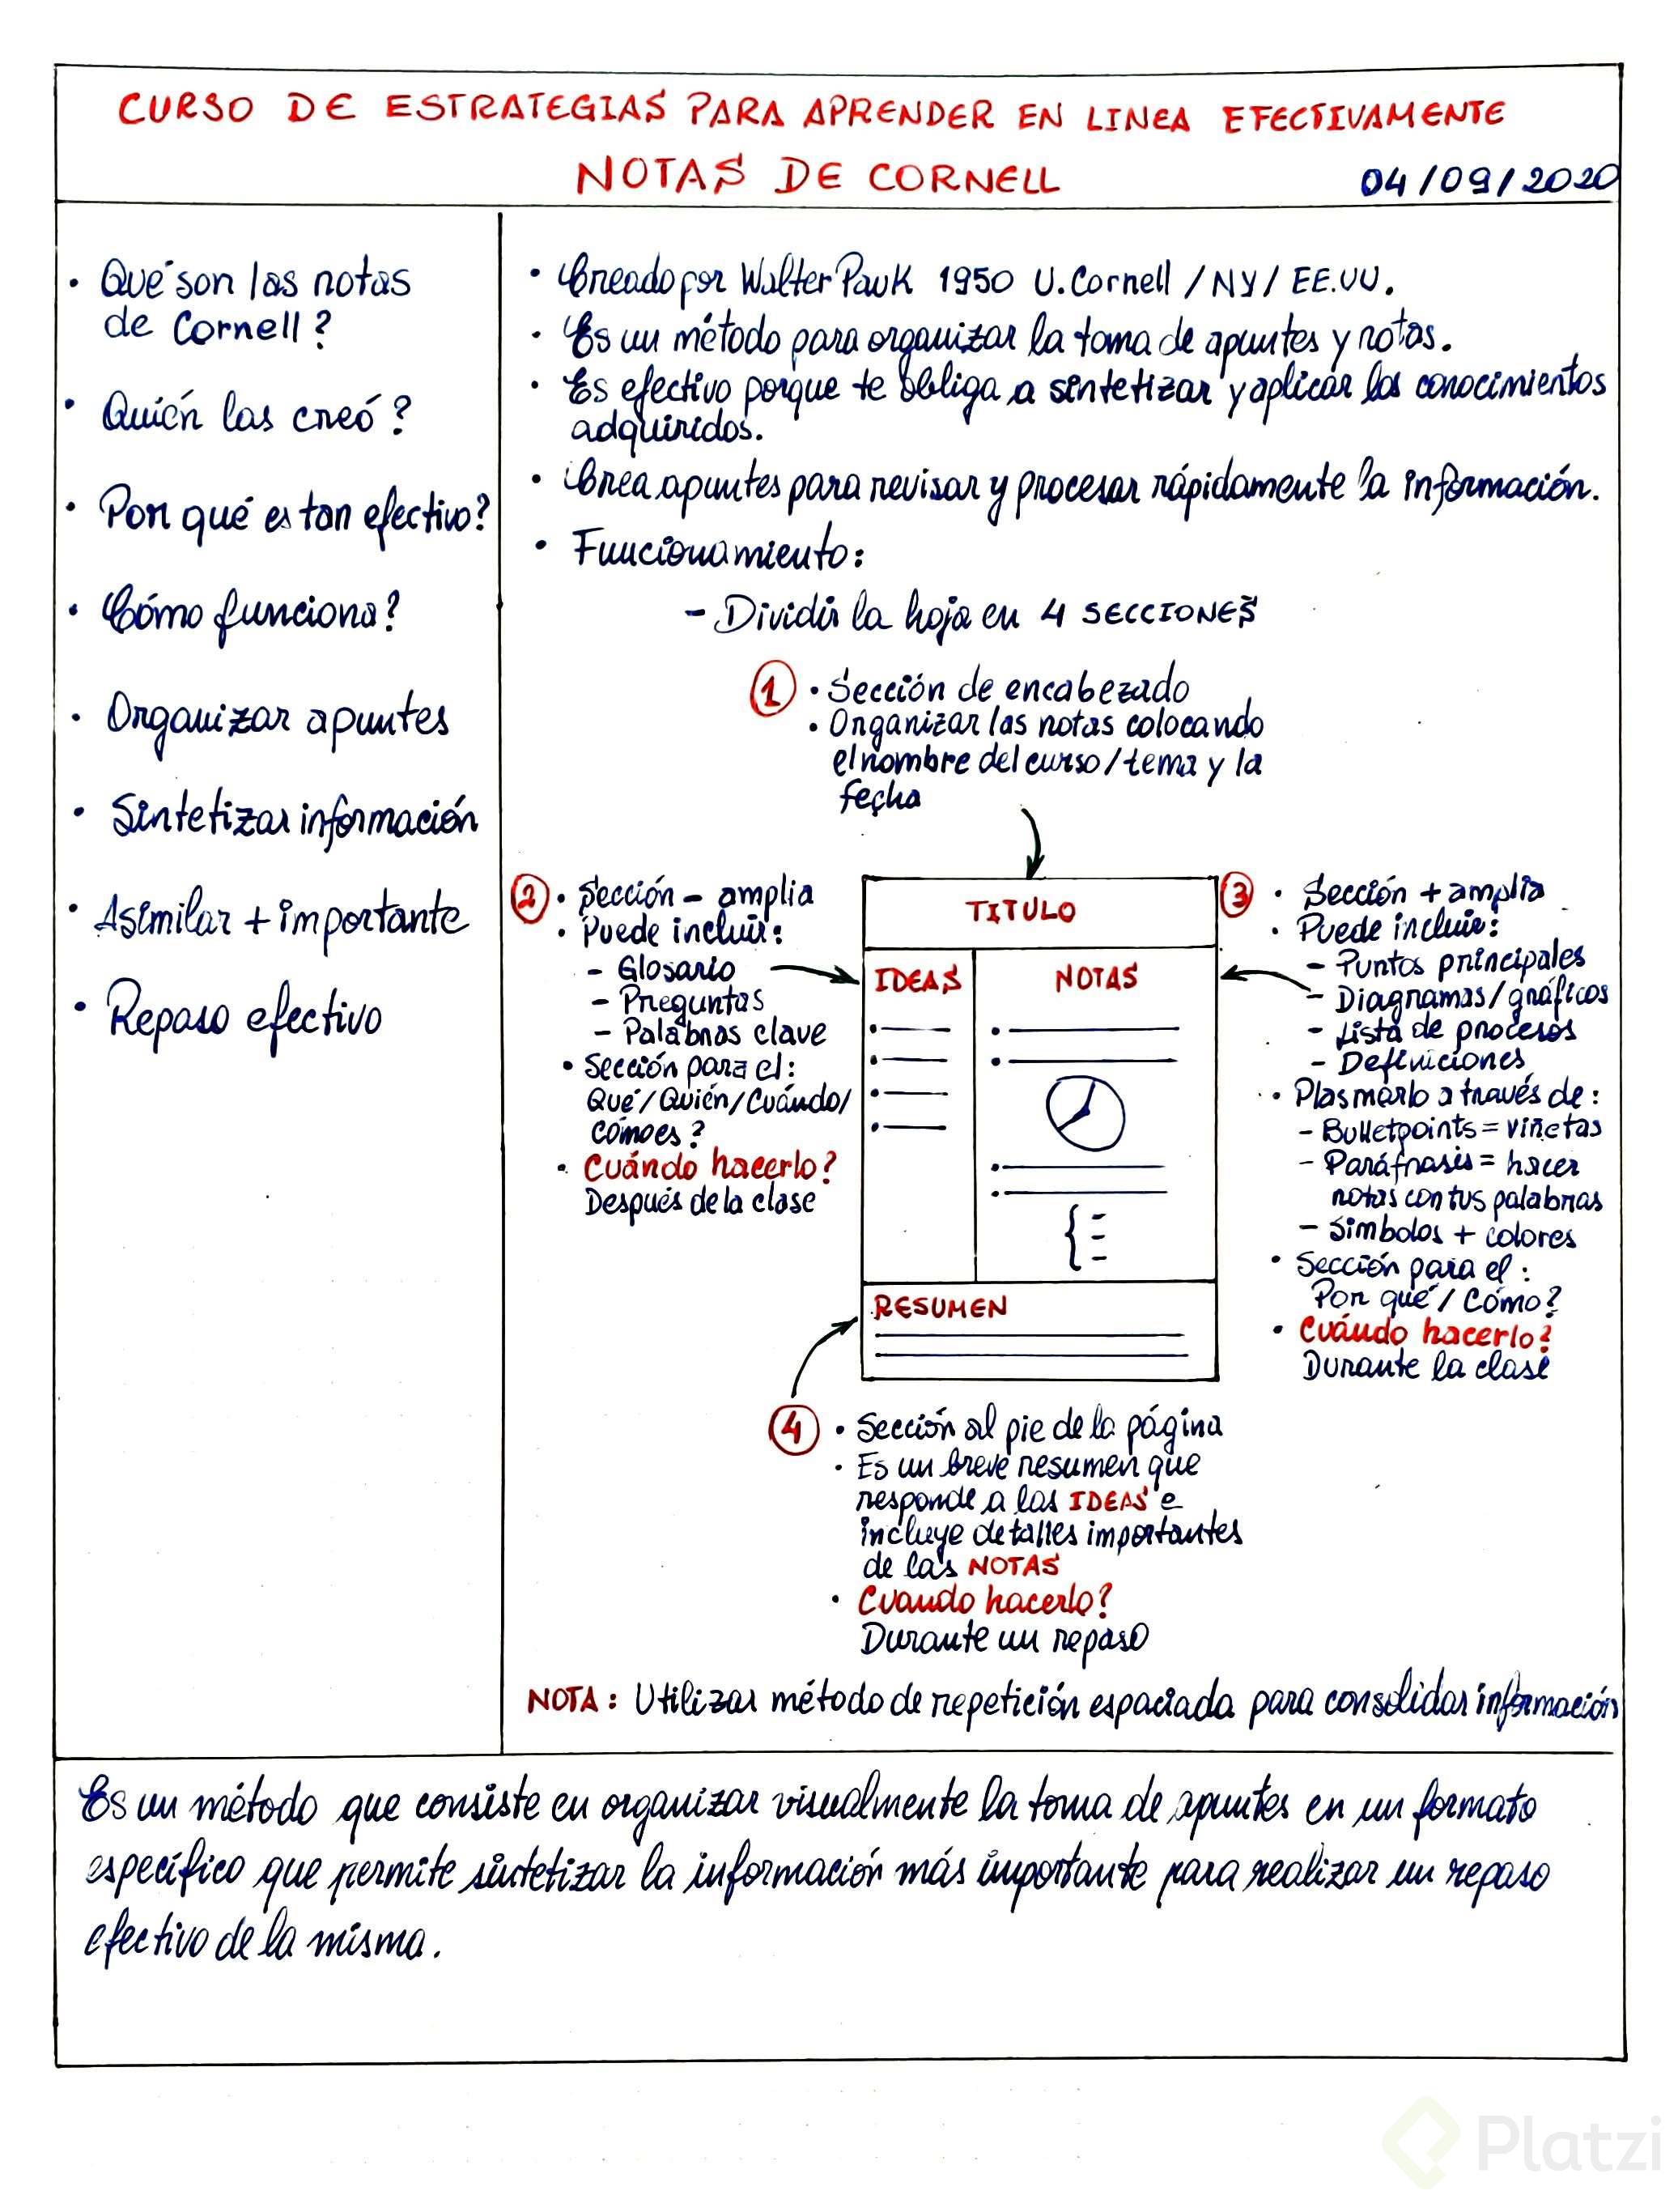 CURSO DE ESTRATEGIAS PARA APRENDER EN LINEA EFECTIVAMENTE
NOTAS DE CORNELL
04/09/2020
• Qué son las notas
de Cornell?
• Quién las creó?
• Por qué es tan efectivo?
• Cómo funciona?
• Organizar apuntes
• Sintetizar información
• Asimilar + importante
• Repaso efectivo
• Creado por Walter Pauk 1950 U. Cornell / NY / EE.UU.
• Es un método para organizar la toma de apuntes y notas.
• Es efectivo porque te obliga a sintetizar y aplicar los conocimientos
adquiridos.
• Crea apuntes para revisar y procesar rápidamente la información.
• Funcionamiento:
- Dividir la hoja en 4 SECCIONES
1 • Sección de encabezado
• Organizar las notas colocando
el nombre del curso/tema y la
fecha
2 • Sección - amplia
• Puede incluir:
- Glosario
- Preguntas
- Palabras clave
• Sección para el:
Qué/Quién/Cuándo/
cómo es?
• Cuándo hacerlo?
Después de la clase
TITULO
IDEAS
NOTAS
RESUMEN
3 • Sección + amplia
• Puede incluir:
- Puntos principales
- Diagramas/gráficos
- Lista de procesos
- Definiciones
• Plasmarlo a través de:
- Bulletpoints = viñetas
- Paráfrasis = hacer
notas con tus palabras
- Símbolos + colores
• Sección para el:
Por qué / Cómo?
• Cuándo hacerlo?
Durante la clase
4 • Sección al pie de la página
• Es un breve resumen que
responde a las IDEAS e
incluye detalles importantes
de las NOTAS
• Cuando hacerlo?
Durante un repaso
NOTA: Utilizar método de repetición espaciada para consolidar información
Es un método que consiste en organizar visualmente la toma de apuntes en un formato
específico que permite sintetizar la información más importante para realizar un repaso
efectivo de la misma.
Platzi